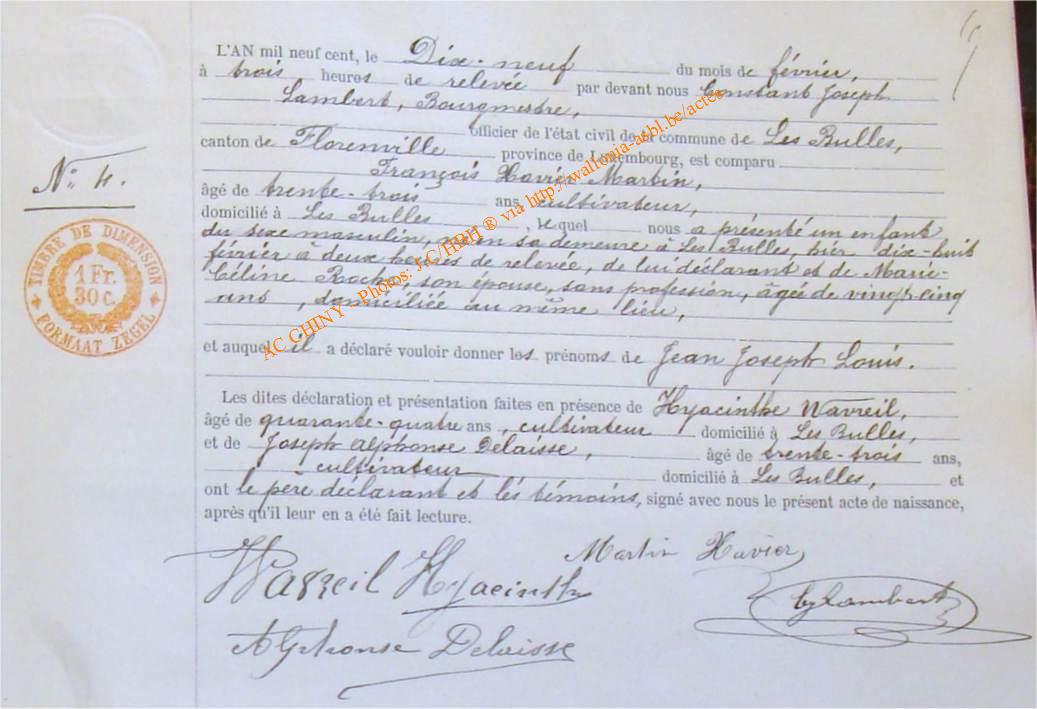 L'AN mil neuf cent, le Dix-neuf du mois de février,
à trois heures de relevée par devant nous Constant Joseph
Lambert, Bourgmestre,
officier de l'état civil de la commune de Les Bulles,
canton de Florenville province de Luxembourg, est comparu
François Xavier Martin,
âgé de trente-trois ans, cultivateur,
domicilié à Les Bulles, lequel nous a présenté un enfant
du sexe masculin, né en sa demeure à Les Bulles, hier dix-huit
février à deux heures de relevée, de lui déclarant et de Marie-
Céline Rocha, son épouse, sans profession, âgée de vingt-cinq
ans, domiciliée au même lieu,
et auquel il a déclaré vouloir donner les prénoms de Jean Joseph Louis.
Les dites déclaration et présentation faites en présence de Hyacinthe Wavreil,
âgé de quarante-quatre ans, cultivateur domicilié à Les Bulles,
et de Joseph Alphonse Delaisse, âgé de trente-trois ans,
cultivateur domicilié à Les Bulles, et
ont le père déclarant et les témoins, signé avec nous le présent acte de naissance,
après qu'il leur en a été fait lecture.
Martin Xavier
Wavreil Hyacinthe
Lambert
Alphonse Delaisse
N° 4.
TIMBRE DE DIMENSION
1 Fr.
30 c.
FORMAAT ZEGEL
AC CHINY - Photos: J.C/HBH ® via http://wallonia-asbl.be/actes